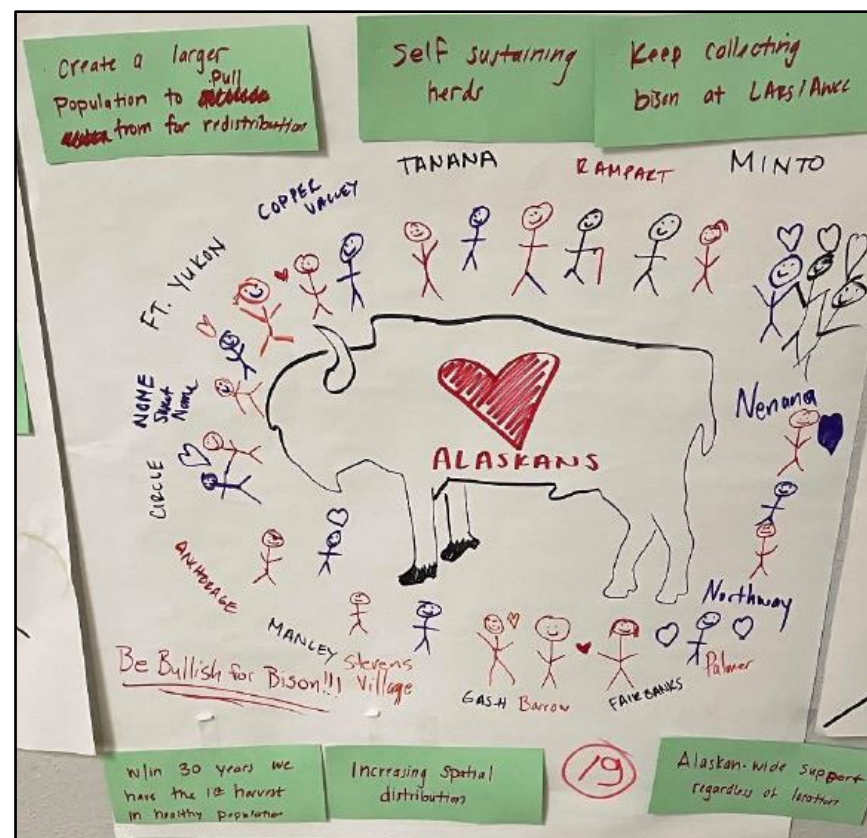 Create a larger
Pull
Population to
from for redistribution
Self sustaining
herds
Keep collecting
bison at LARS/AWCC
TANANA
RAMPART
MINTO
COPPER
VALLEY
FT. YUKON
NOME
Sweet
Nome
CIRCLE
ANCHORAGE
MANLEY
Stevens
Village
GASH
Barrow
FAIRBANKS
Palmer
Northway
Nenana
ALASKANS
Be Bullish for Bison!!!
w/in 30 years we
have the 1st harvest
in healthy population
Increasing spatial
distribution
19
Alaskan-wide support
regardless of location